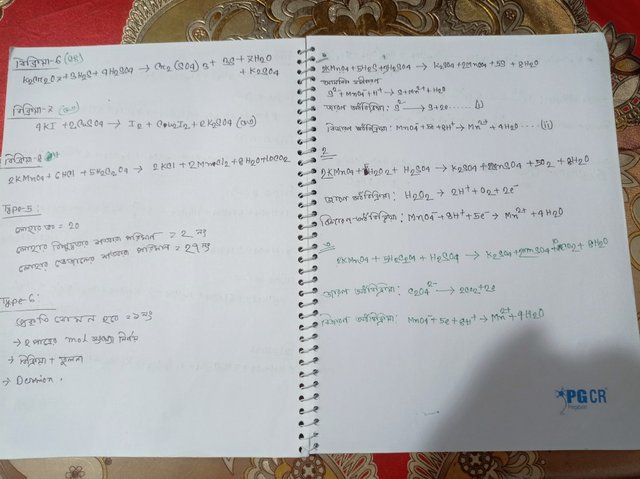 বিক্রিয়া-6
K2Cr2O7+3H2S+4H2SO4 → Cr2(SO4)3+3S+7H2O
+K2SO4
বিক্রিয়া-7
4KI + 2CuSO4 → I2 + Cu2I2 + 2K2SO4
বিক্রিয়া-8
2KMnO4 + 6HCl + 5H2C2O4 → 2KCl + 2MnCl2 + 8H2O+10CO2
Type-5:
= 20
= 2 নং
= 27 নং
Type-6:
→ 2 mol নির্ণয়
→ বিক্রিয়া + তুলনা
1
2KMnO4+5H2S+3H2SO4 → K2SO4+2MnSO4+5S+8H2O
S2-+MnO4-+H+ → S+Mn2++H2O
জারণ অর্ধবিক্রিয়া: S2- → S+2e ...... (i)
বিজারণ অর্ধবিক্রিয়া: MnO4-+5e+8H+ → Mn2++4H2O ...... (ii)
2
2KMnO4 + 5H2O2 + H2SO4 → K2SO4+2MnSO4 + 5O2 + 8H2O
জারণ অর্ধবিক্রিয়া: H2O2 → 2H+ + O2 + 2e-
বিজারণ-অর্ধবিক্রিয়া: MnO4-+8H++5e- → Mn2+ + 4H2O
৩
2KMnO4 + 5H2C2O4 + H2SO4 → K2SO4+2MnSO4+10CO2+8H2O
জারণ অর্ধবিক্রিয়া: C2O42- → 2CO2+2e
বিজারণ অর্ধবিক্রিয়া: MnO4-+5e+8H+ → Mn2++4H2O
PGCR